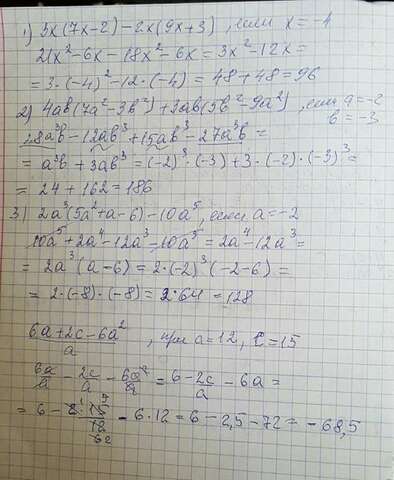 1) 3x(7x-2)-2x(9x+3), если x=-4
21x²-6x-18x²-6x=3x²-12x=
=3·(-4)²-12·(-4)=48+48=96
2) 4ab(7a²-3b²)+3ab(5b²-9a²), если a=-2
b=-3
28a³b-12ab³+15ab³-27a³b=
=a³b+3ab³=(-2)³·(-3)+3·(-2)·(-3)³=
=24+162=186
3) 2a³(5a²+a-6)-10a⁵, если a=-2
10a⁵+2a⁴-12a³-10a⁵=2a⁴-12a³=
=2a³(a-6)=2·(-2)³(-2-6)=
=2·(-8)·(-8)=2·64=128
(6a+2c-6a²)/a, при a=12, c=15
6a/a-2c/a-6a²/a=6-2c/a-6a=
=6-2·15/12-6·12=6-2,5-72=-68,5